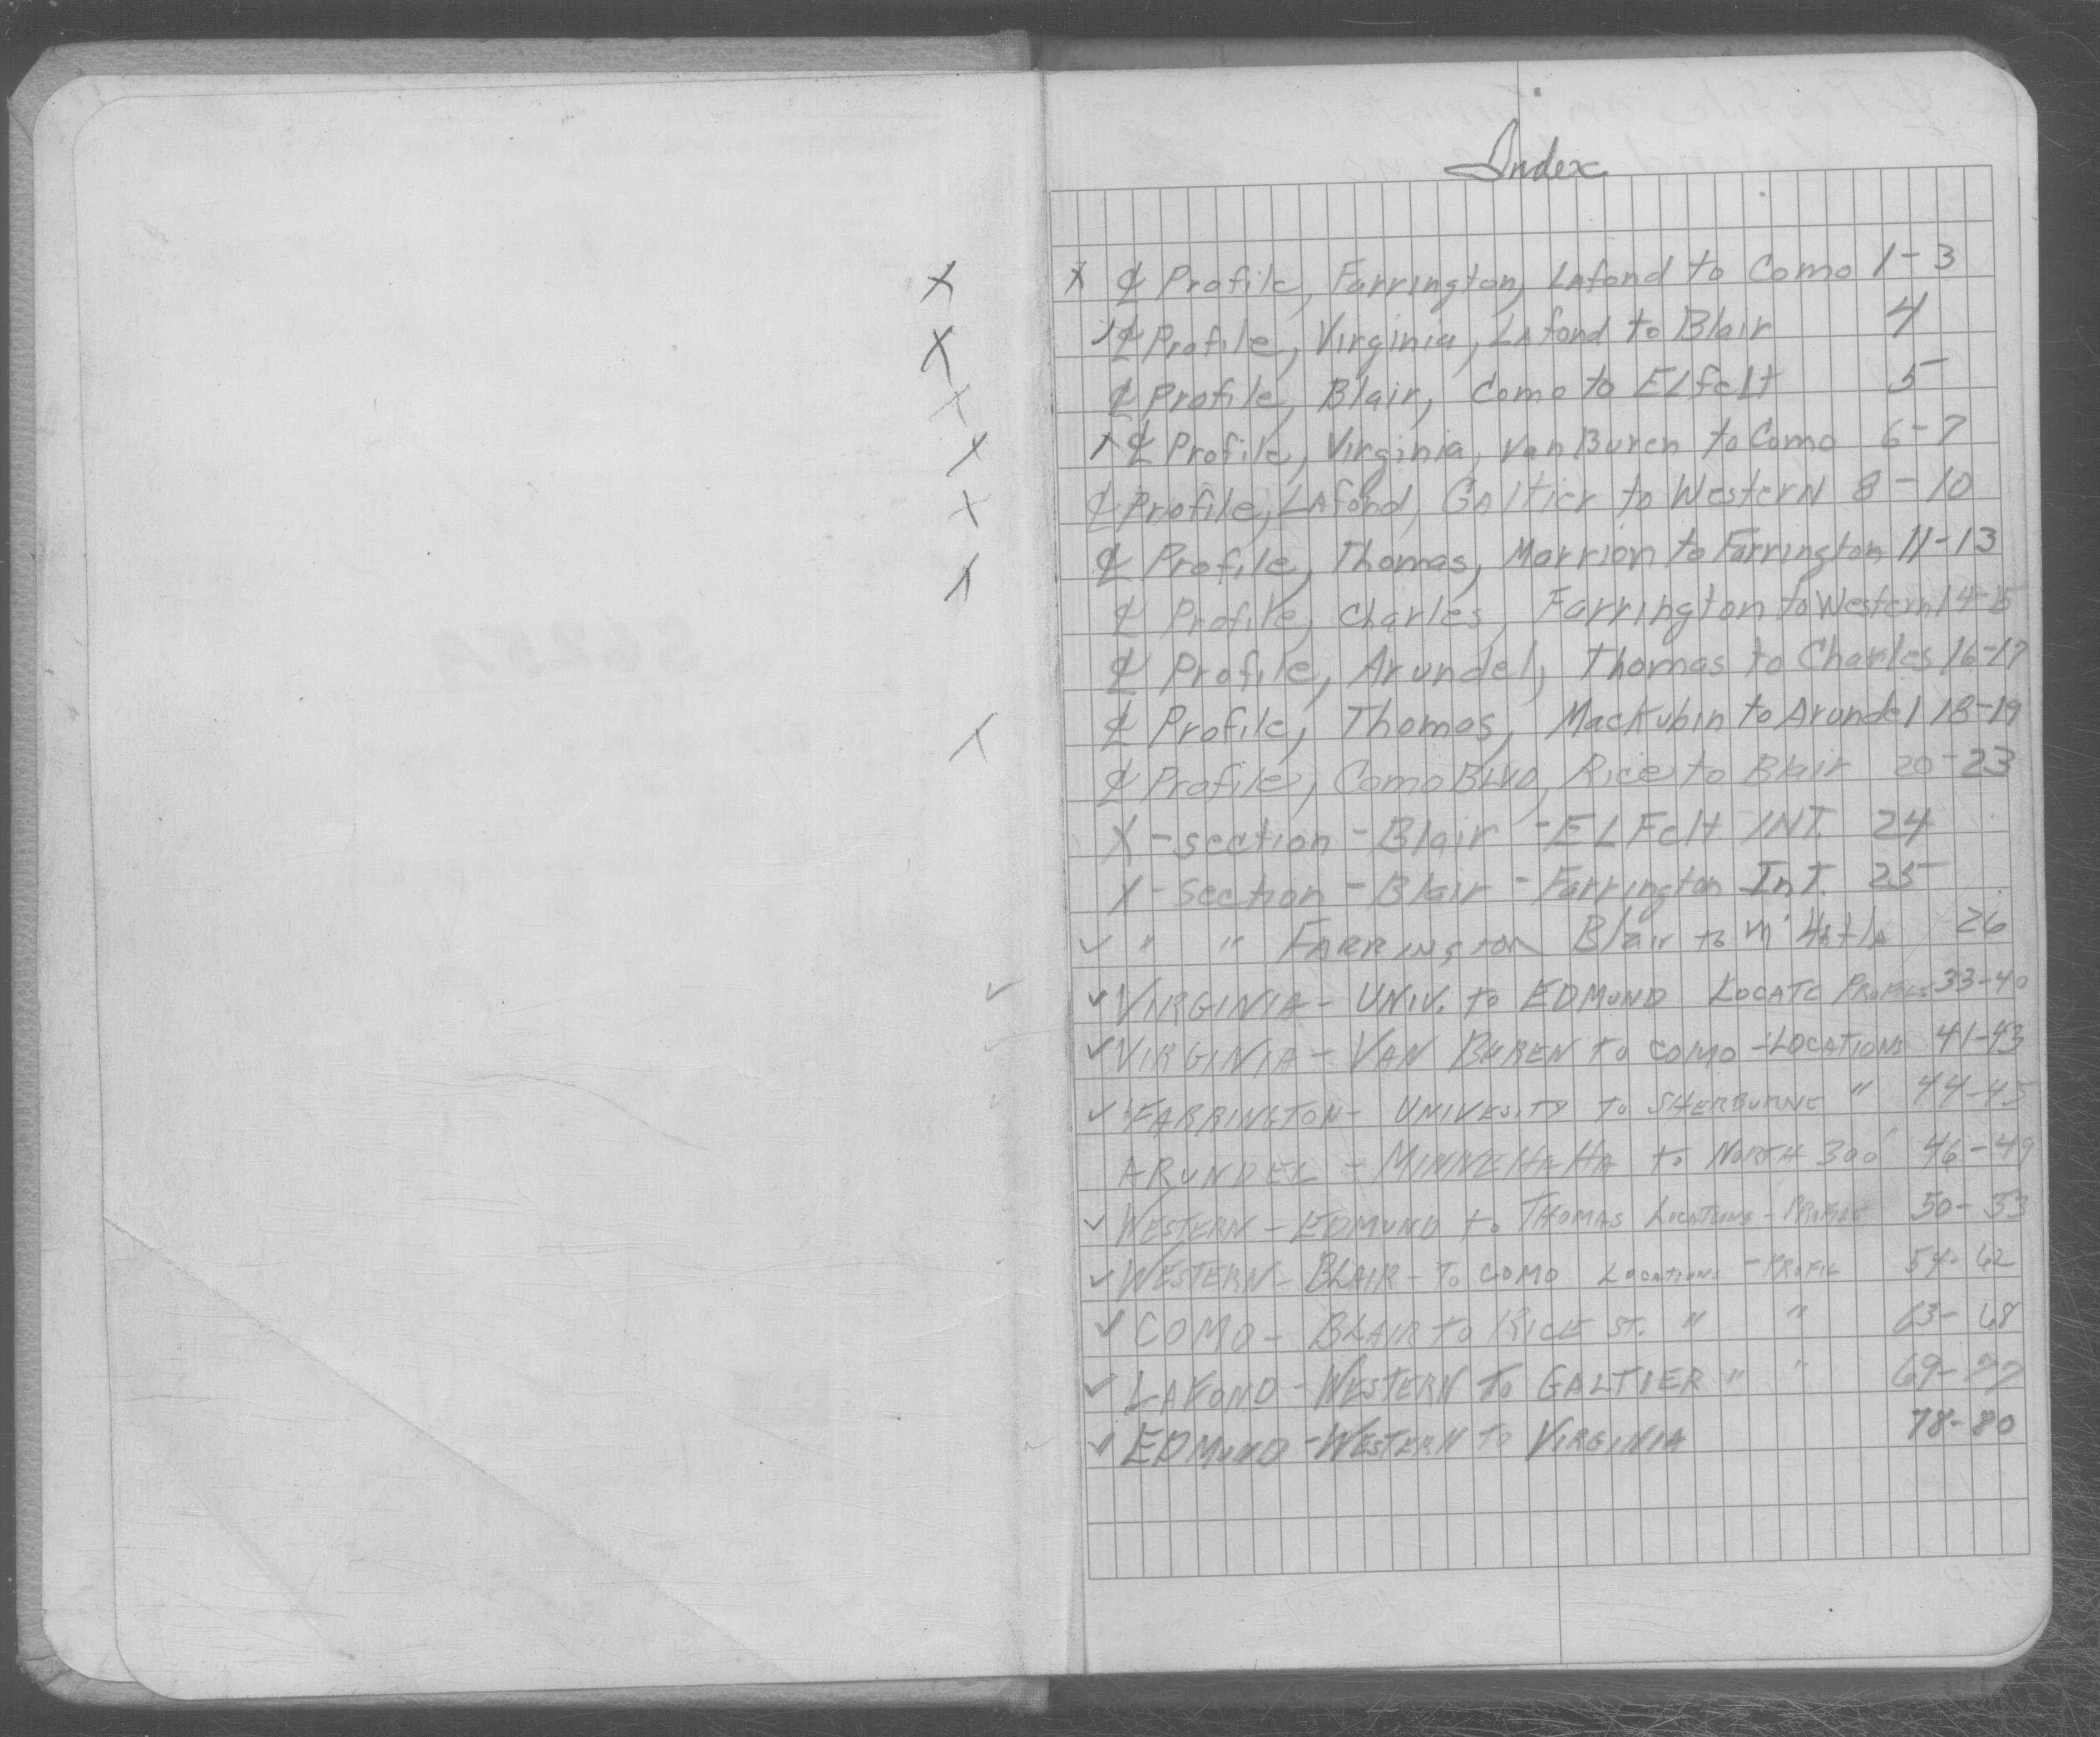 Index
X ℄ Profile, Farrington, LAfond to Como 1-3
℄ Profile, Virginia, LAfond to Blair 4
℄ Profile, Blair, Como to ELfelt 5
℄ Profile, Virginia, Van Buren to Como 6-7
℄ Profile, LAfond, GAltier to WesterN 8-10
℄ Profile, Thomas, Marrion to Farrington 11-13
℄ Profile, Charles, Farrington to Western 14-15
℄ Profile, Arundel, Thomas to Charles 16-17
℄ Profile, Thomas, Mackubin to Arundel 18-19
℄ Profile, Como BLVD, Rice to Blair 20-23
X-section-Blair-ELFelt INT. 24
X-Section-Blair-Farrington InT. 25
✓ " " FARRINgTON Blair to 26
✓ VIRGINIA - UNIV. to EDMUND LOCATE PROFILE 33-40
✓ VIRGINIA - VAN BUREN to COMO -LOCATIONS 41-43
✓ FARRINGTON - UNIVESITY TO SHERBURNE " 44-45
ARUNDEL - MINNEHAHA to NORTH 300' 46-49
✓ WESTERN - EDMUND to THOMAS LOCATIONS - PROFILE 50-53
✓ WESTERN - BLAIR - TO COMO LOCATIONS - PROFIL 54-62
✓ COMO - BLAIR to RICE ST. " " 63-68
✓ LAFOND - WESTERN TO GALTIER " " 69-77
✓ EDMUND - WESTERN to VIRGINIA 78-80